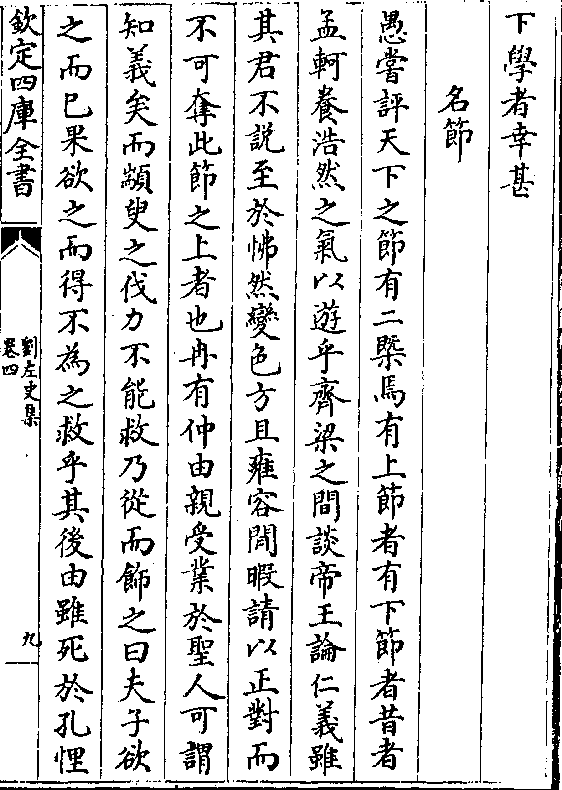 下學者幸甚
名節
愚嘗評天下之節有二槩焉有上節者有下節者昔者
孟軻養浩然之氣以遊乎齊梁之間談帝王論仁義雖
其君不說至於怫然變色方且雍容閒暇請以正對而
不可奪此節之上者也冉有仲由親受業於聖人可謂
知義矣而顓臾之伐力不能救乃從而飾之曰夫子欲
之而已果欲之而得不為之救乎其後由雖死於孔悝
欽定四庫全書
劉左史集
卷四
九